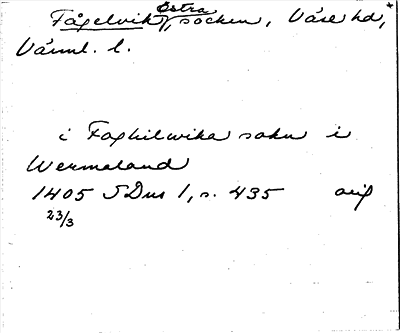 Fågelvik, Östra, socken, Väse hd,
Värml. l.
i Foghilwika sokn i
Wermaland
1405 SDns 1, s. 435 orig
23/3